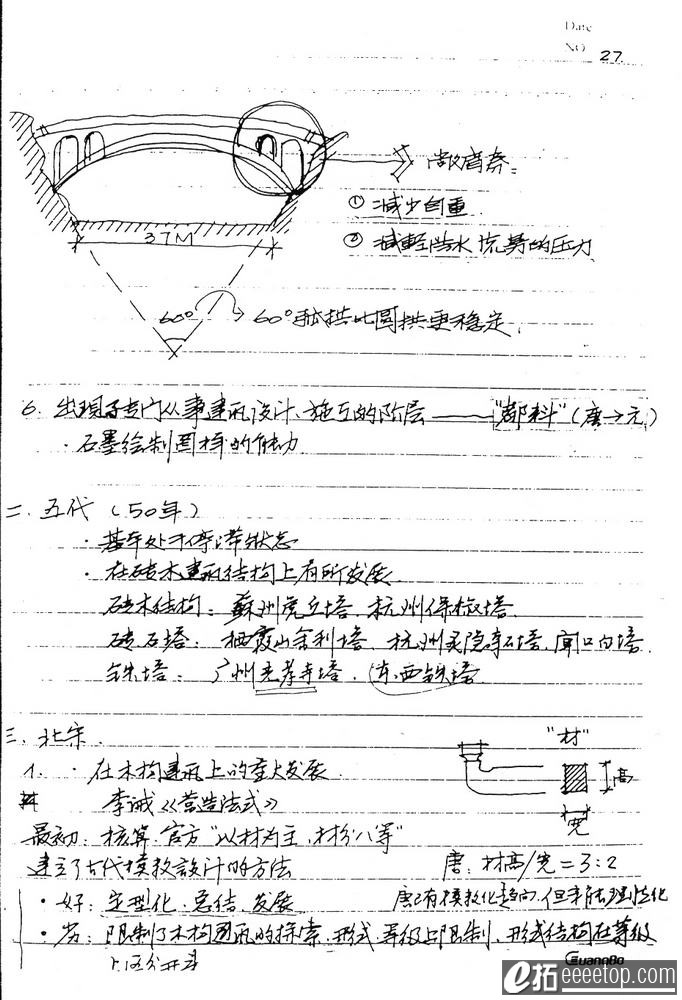 Date
NO 27.
敞肩券:
① 减少自重.
② 减轻洪水 浇暴的压力
37M
60° 60°弧拱比圆拱更稳定.
6. 出现了专门从事建筑设计、施工的阶层——"都料"(唐→元)
· 石墨绘制图样的能力
二. 五代 (50年)
· 基本处于停滞状态
· 在砖木建筑结构上有所发展.
砖木结构: 蘇州虎丘塔. 杭州保椒塔.
砖石塔: 栖霞山舍利塔. 杭州灵隐寺石塔. 闸口白塔.
铁塔: 广州光孝寺塔. (东、西铁塔
三. 北宋.
1. · 在木构建筑上的重大发展. "材"
李诫《营造法式》 高
最初: 核算. 官方 "以材为主, 材分八等" 宽
建立了古代模数設計的方法 唐: 材高/宽=3:2
· 好: 定型化. 总结. 发展 唐已有模数化趋向, 但未
· 劣: 限制了木构建筑的探索. 形式. 等级上限制. 形式结构在等级
上区分开来
GuangBo
e拓 eeeetop.com